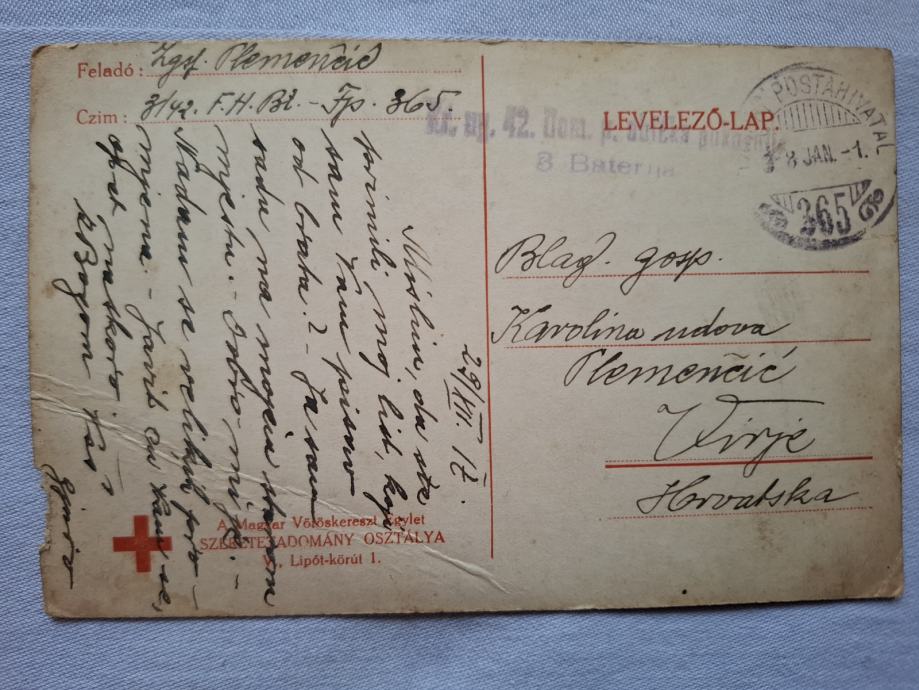 Feladó: Zgsf. Plemenčić
Czim: 3/42. F.H.Bt. - Fp. 365.
LEVELEZŐ-LAP.
42. Dom. p.
3 Baterija
POSTAHIVATAL
8 JAN. -1.
365
Blag. gosp.
Karolina udova
Plemenčić
Virje
Hrvatska
29/XII. 17.
Mislim, da ste
primili moj list, kojeg
sam Vam pisao
od brata? - Ja sam
sada na mojem starom
mjestu. - Dobro mi je. -
Nadam se velikih pro-
mjena. - Javit ću Vam se,
opet naskoro. Pas
Bogom
A Magyar Vöröskereszt Egylet
SZERETETADOMÁNY OSZTÁLYA
V., Lipót-körút 1.